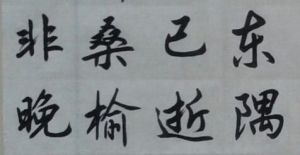 东隅
已逝
桑榆
非晚